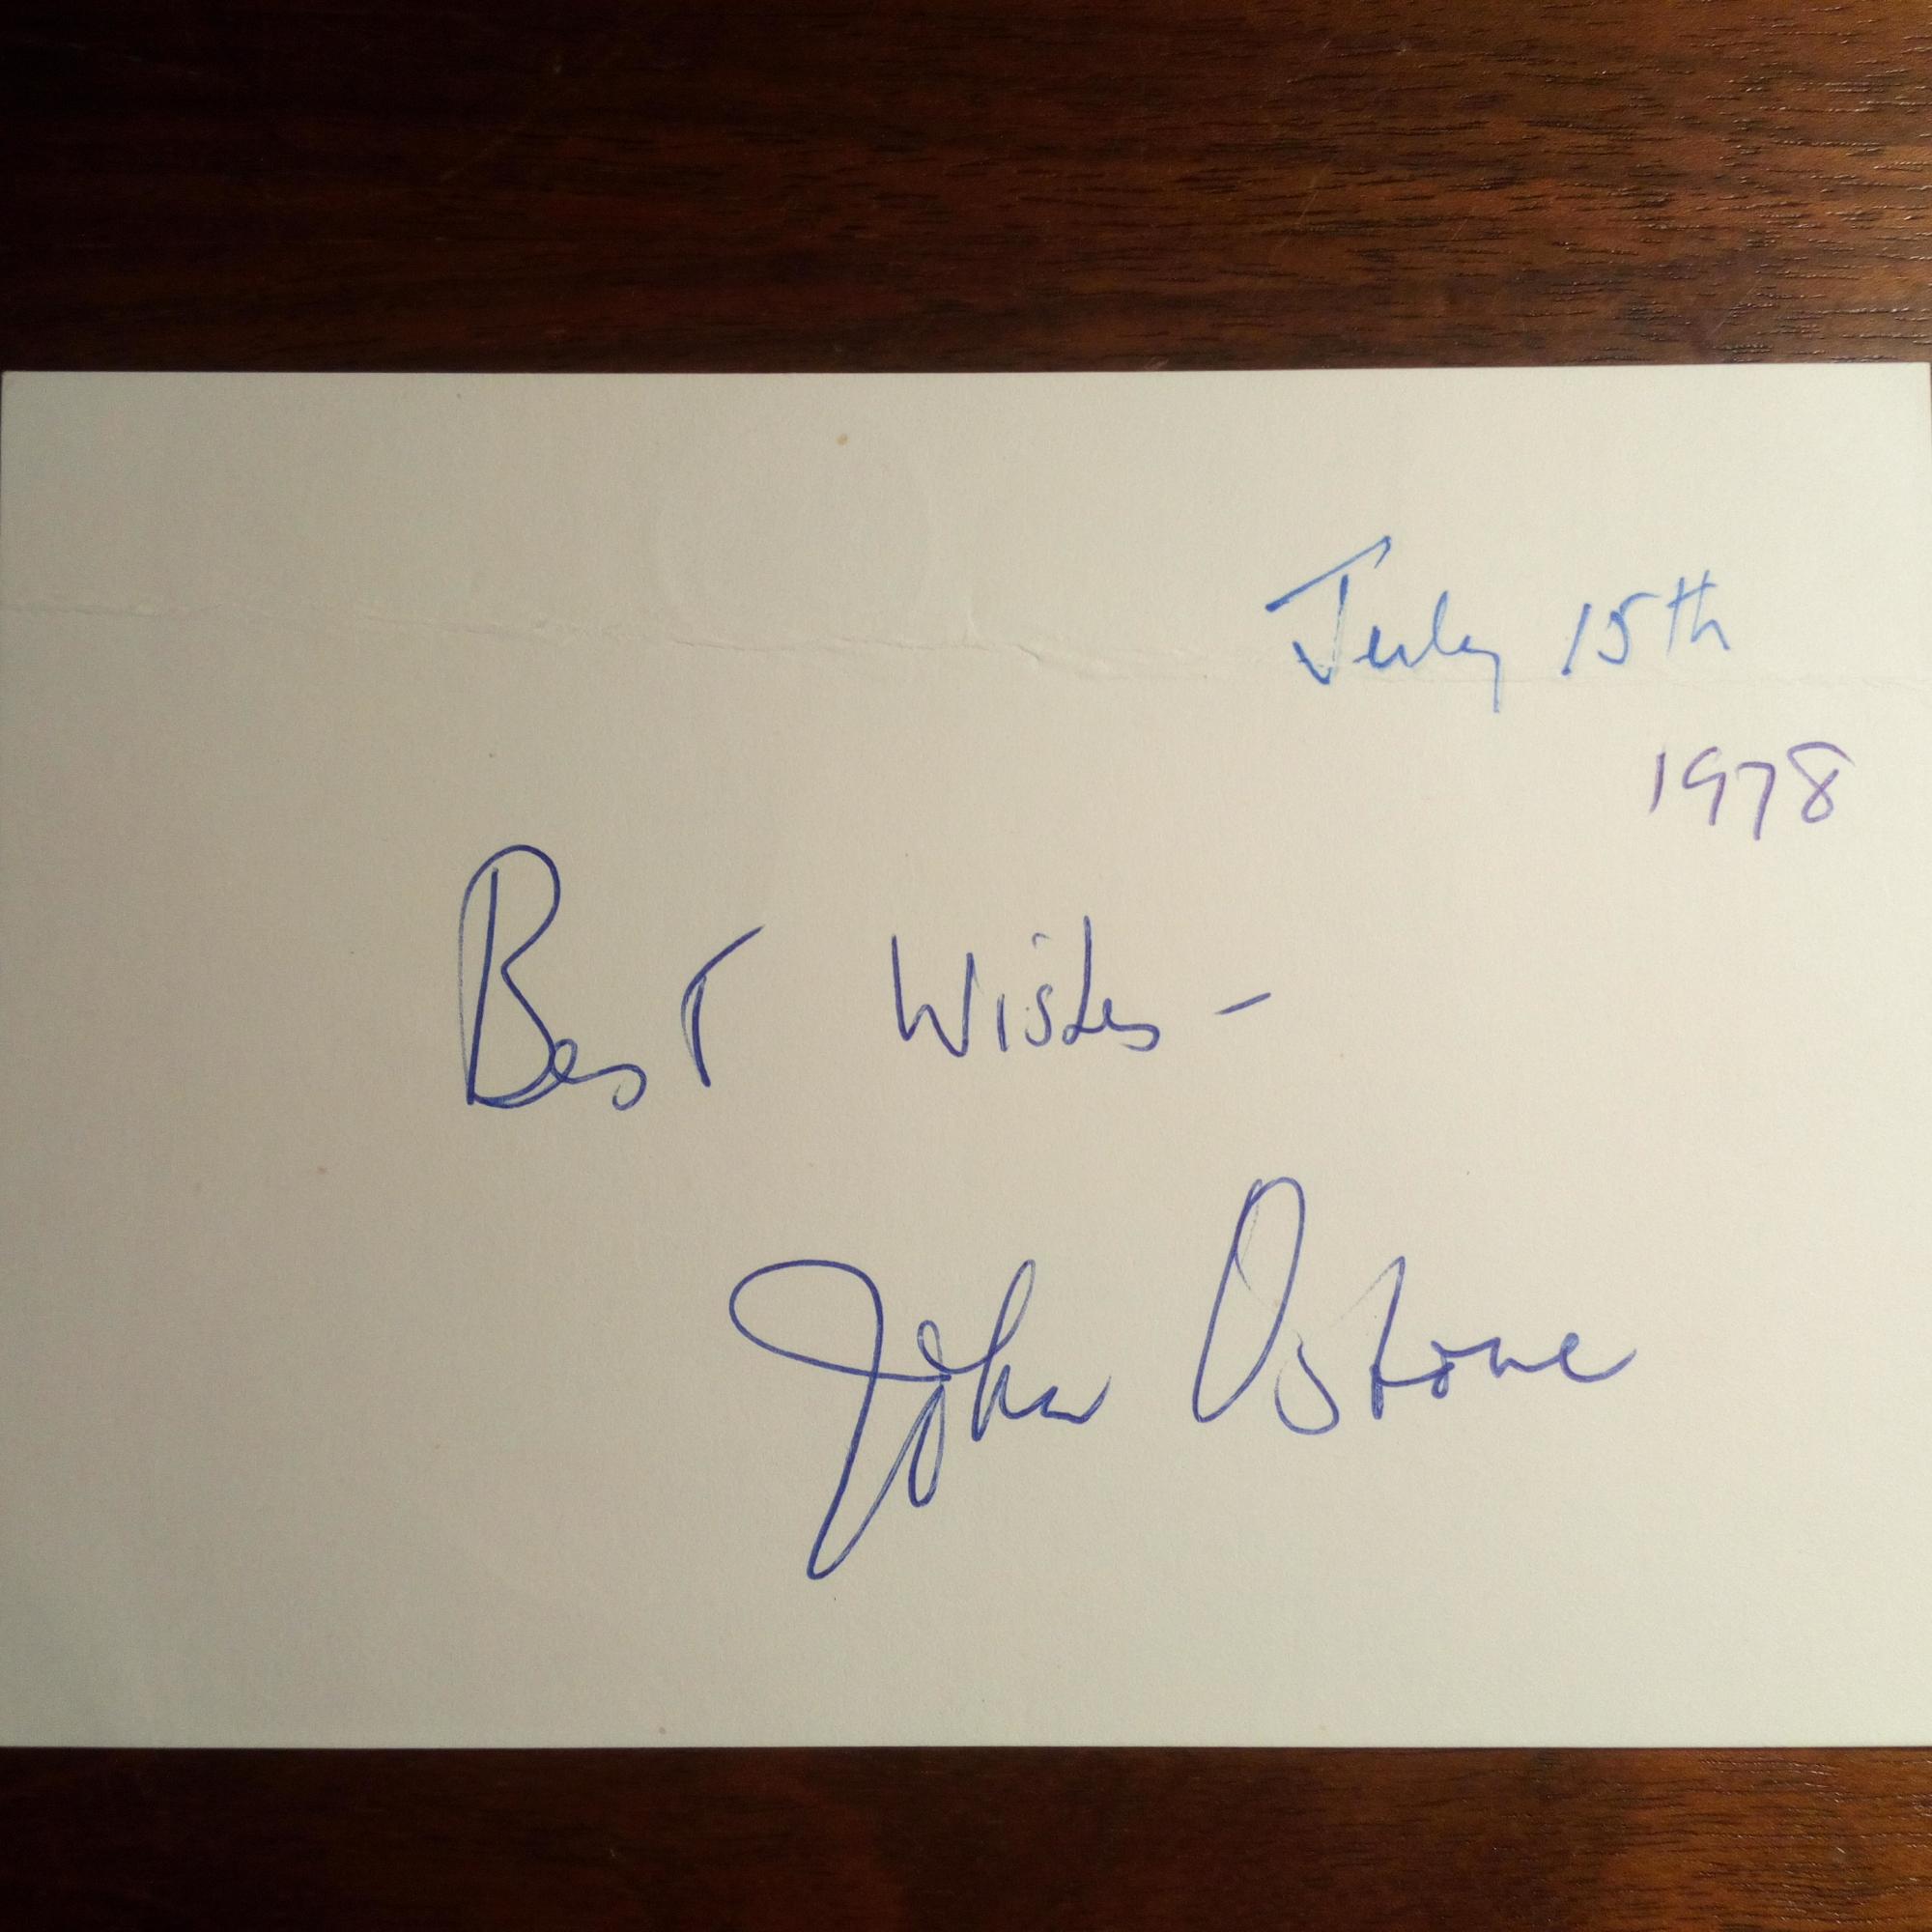 July 15th
1978
Best Wishes -
John Osborne